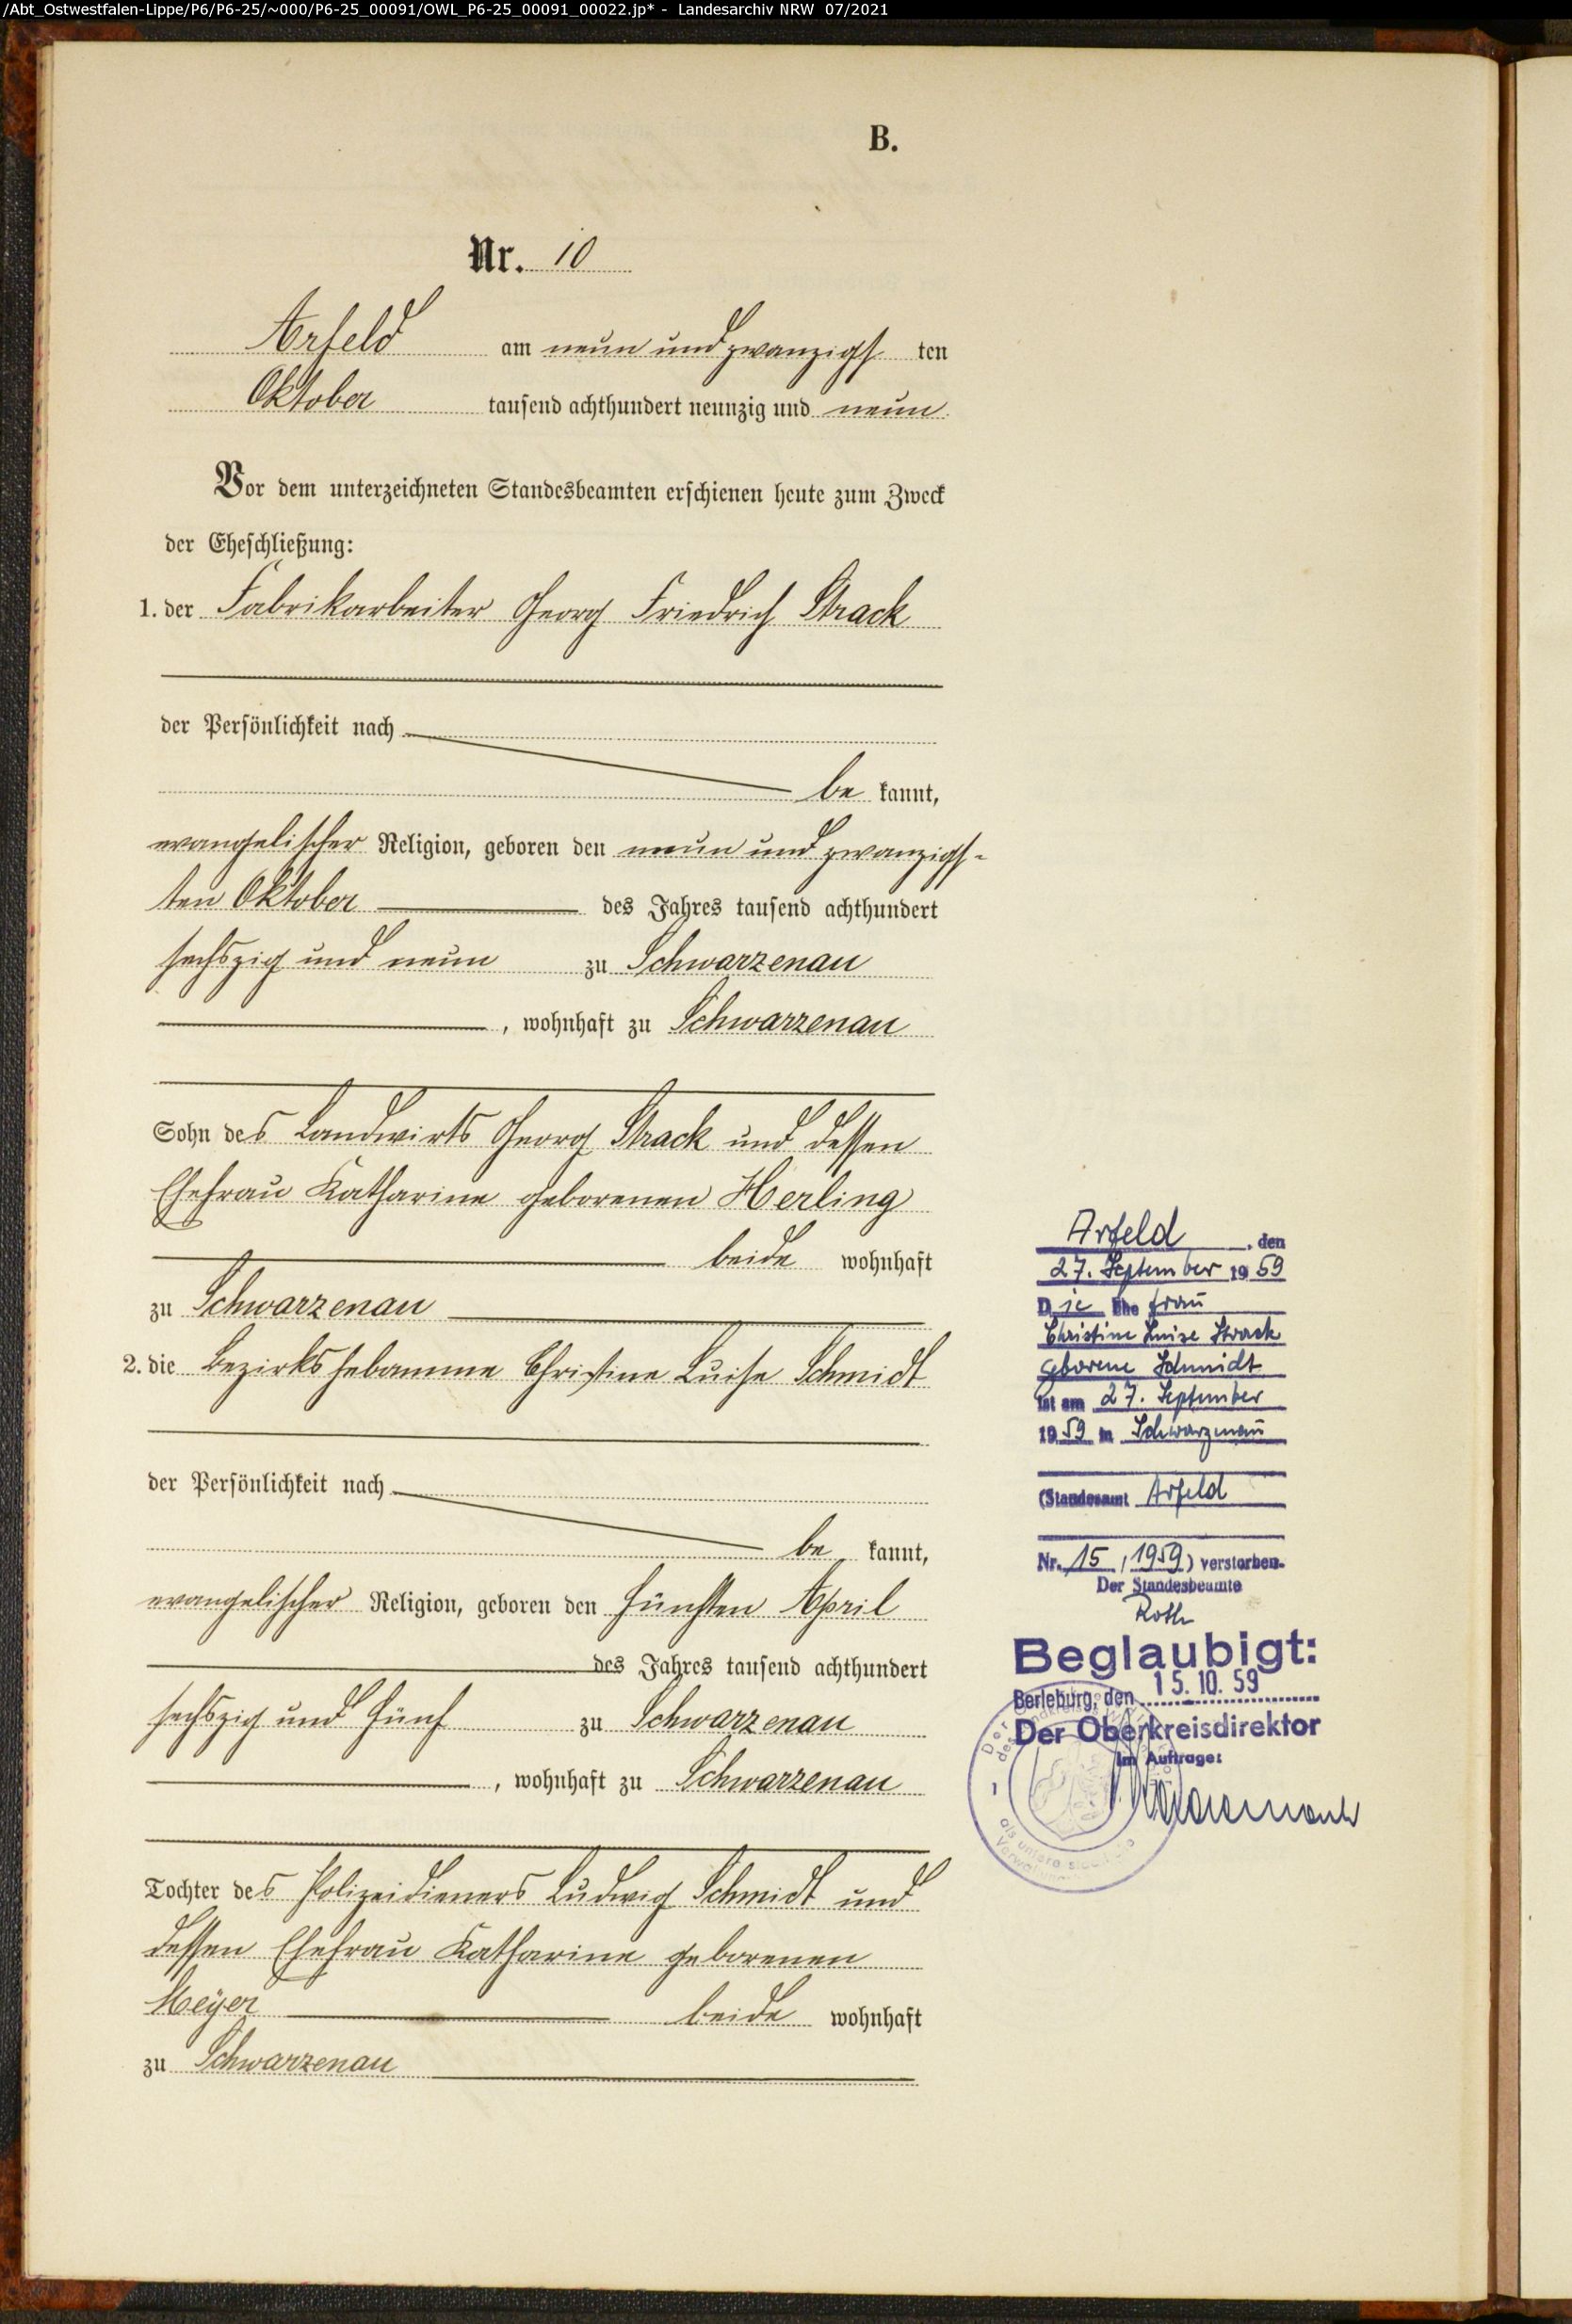 /Abt_Ostwestfalen-Lippe/P6/P6-25/~000/P6-25_00091/OWL_P6-25_00091_00022.jp* - Landesarchiv NRW 07/2021
B.
Nr. 10
Arfeld am neun und zwanzigs ten
Oktober tausend achthundert neunzig und neun
Vor dem unterzeichneten Standesbeamten erschienen heute zum Zweck
der Eheschließung:
1. der Fabrikarbeiter Georg Friedrich Strack
der Persönlichkeit nach
be kannt,
evangelischer Religion, geboren den neun und zwanzigs-
ten Oktober des Jahres tausend achthundert
sechszig und neun zu Schwarzenau
, wohnhaft zu Schwarzenau
Sohn des Landwirts Georg Strack und dessen
Ehefrau Katharine geborenen Herling
beide wohnhaft
zu Schwarzenau
2. die Bezirkshebamme Christine Luise Schmidt
der Persönlichkeit nach
be kannt,
evangelischer Religion, geboren den fünften April
des Jahres tausend achthundert
sechszig und fünf zu Schwarzenau
, wohnhaft zu Schwarzenau
Tochter des Polizeidieners Ludwig Schmidt und
dessen Ehefrau Katharine geborenen
Meÿer beide wohnhaft
zu Schwarzenau
Arfeld, den
27. September 1959
Die Ehefrau
Christine Luise Strack
geborene Schmidt
ist am 27. September
1959 in Schwarzenau
(Standesamt Arfeld
Nr. 15 / 1959) verstorben.
Der Standesbeamte
Roth
Beglaubigt:
Berleburg, den 15. 10. 59
Der Oberkreisdirektor
Im Auftrage: